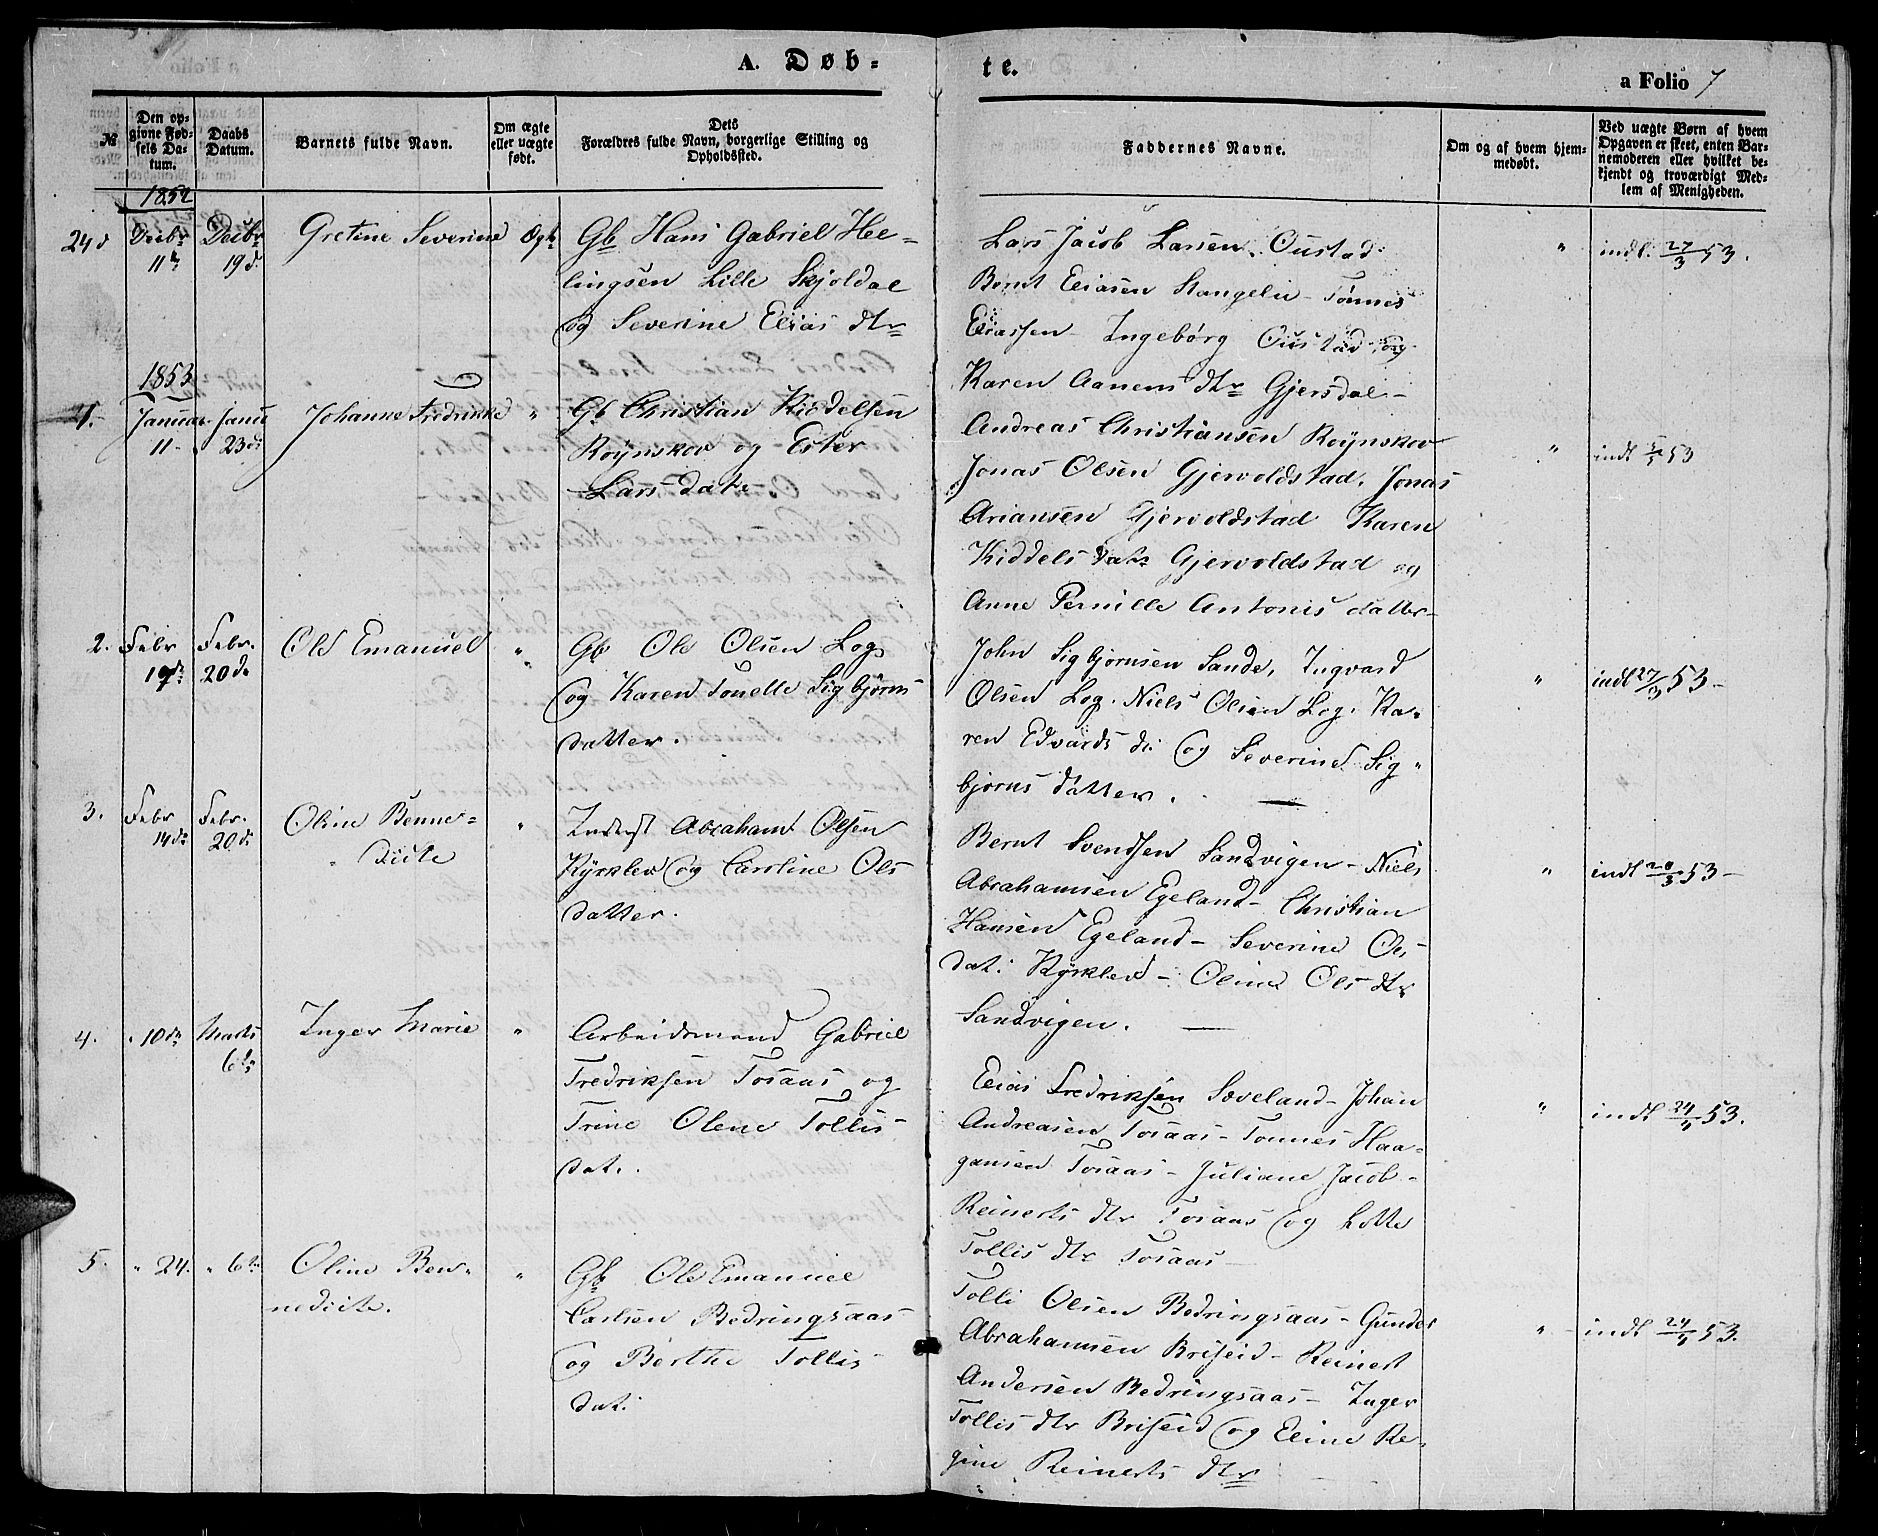 A. Døb-
te.
a Folio 7
№
Den opgivne Fødsels Datum.
Daabs Datum.
Barnets fulde Navn.
Om ægte eller uægte født.
Dets
Forældres fulde Navn, borgerlige Stilling og
Opholdssted.
Faddernes Navne.
Om og af hvem hjemmedøbt.
Ved uægte Børn af hvem
Opgaven er skeet, enten Barnemoderen eller hvilket bekjendt og troværdigt Medlem af Menigheden.
1852
24d Decbr 11te Decbr 19d. Gretine Severine Ægte
Gb Hans Gabriel Hel-
lingsen Lille Skjoldal
og Severine Elias dtr
Lars Jacob Larsen Oustad
Bernt Eliasen Stangelie - Tønnes
Eliassen - Ingebørg Oustad og
Karen Aanens dtr Gjersdal -
" indl. 27/3 53.
1853
1. Januar 11- Janu 23d. Johanne Fredrikke "
Gb Christian Kiddelsen
Røynskov og Ester
Lars dat.
Andreas Christiansen Røynskov
Jonas Olsen Gjervoldstad. Jonas
Ariansen Gjervoldstad Karen
Kiddels datr Gjervoldstad og
Anne Pernille Antonis datter -
" indt 53
2. Febr 19d. Febr. 20d. Ole Emanuel "
Gb Ole Olsen Log
og Karen Tonette Sigbjørns
datter.
John Sigbjørnsen Sande, Ingvard
Olsen Log. Niels Olsen Log. Ka-
ren Edvards d. og Severine Sig-
bjørns datter.
" indl 27/3 53 -
3. Febr 14de Febr. 20d. Oline Benne-
dicte "
Inderst Abraham Olsen
Kyrklev og Caroline Ols
datter.
Bernt Svendsen Sandvigen - Niels
Abrahamsen Egeland - Christian
Hansen Egeland - Severine Ols
dat: Kyrklev - Oline Ols dtr
Sandvigen.
" indt 28/3 53 -
4. " 10de Marts 6te Inger Marie "
Arbeidsmand Gabriel
Fredriksen Tosaas og
Trine Olene Tollis
dat.
Elias Fredriksen Sæveland - Johan
Andreasen Tosaas - Tønnes Haa-
gansen Tosaas - Juliane Jacob -
Reinerts dtr Tosaas og Lotte
Tollis dtr Tosaas -
" indt 24/4 53.
5. " 24. " 6te Oline Ben-
nedicte. "
Gb Ole Emanuel
Carlsen Bedringsaas
og Berthe Tollis
dat:
Tolli Olsen Bedringsaas - Gunder
Abrahamsen Briseid - Reinert
Andersen Bedringsaas - Inger
Tollis dtr Briseid og Eline Re-
gine Reinerts dtr
" indt 24/4 53.